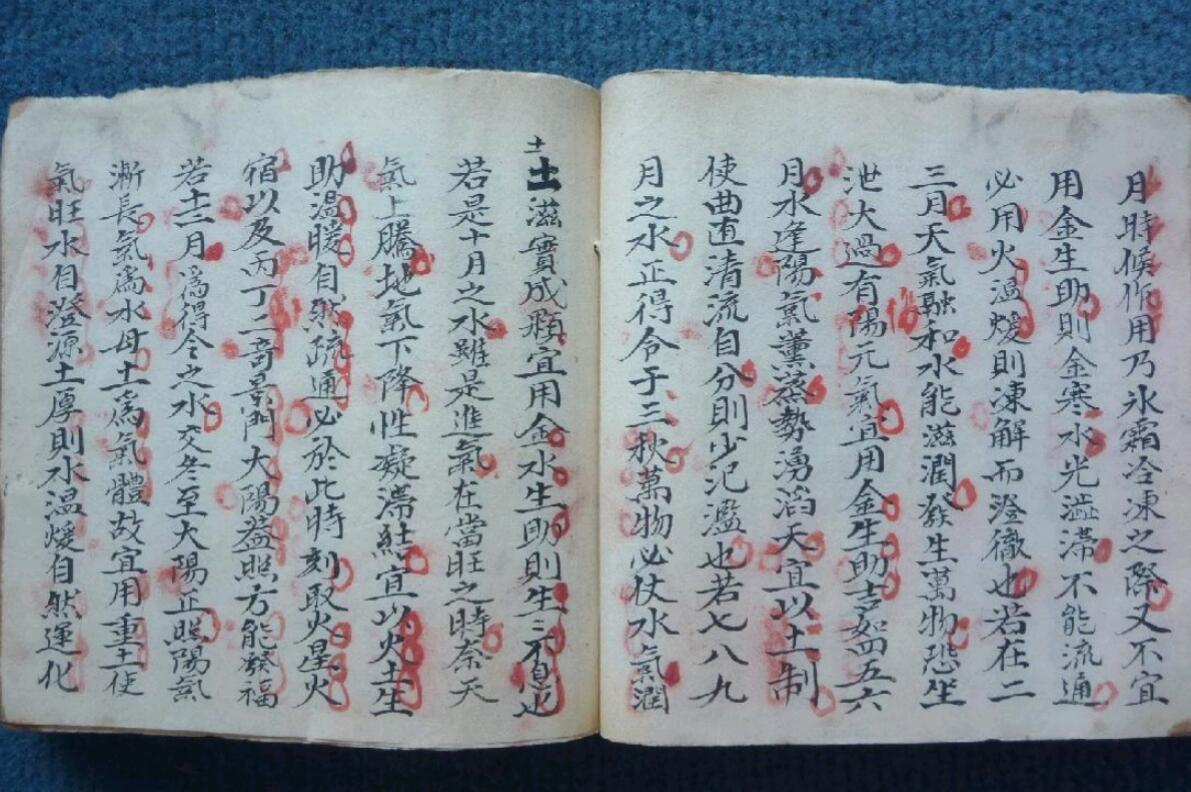 月時候作用乃氷霜冷凍之際又不宜
用金生助則金寒水光澁滯不能流通
必用火溫煖則凍解而澄徹也若在二
三月天氣融和水能滋潤發生萬物恐坐
泄大過有陽元氣宜用金生助吉如四五六
月水逢陽氣薰蒸勢湧滔天宜以土制
使曲直清流自分則少氾濫也若七八九
月之水正得令于三秋萬物必仗水氣潤
土
土滋實成顆宜用金水生助則生〻不息也
若是十月之水雖是進氣在當旺之時奈天
氣上騰地氣下降性凝滯結宜以火土生
助溫暖自然疏通必於此時刻取火星火
宿以及丙丁二奇景門大陽益照方能發福
若十二月為得令之水交冬至大陽正照陽氣
漸長氣為水母土為氣體故宜用重土使
氣旺水自澄源土厚則水溫煖自然運化